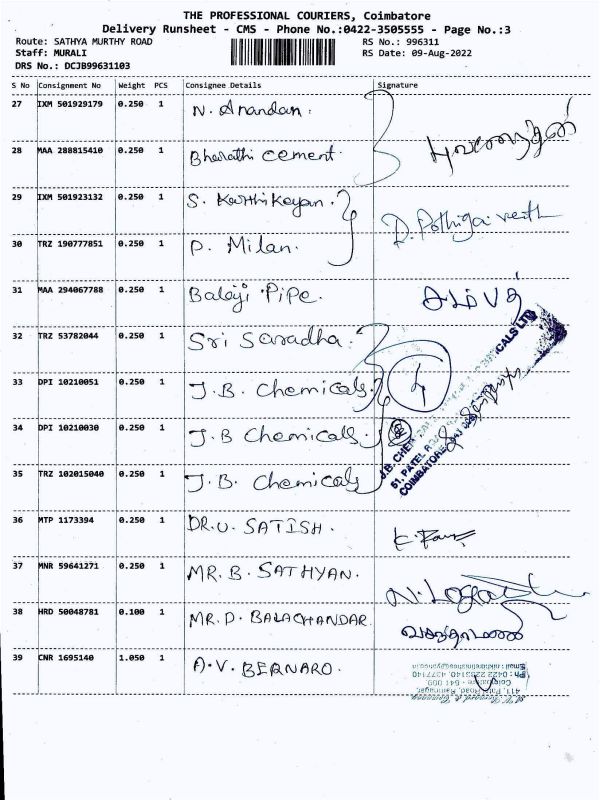 THE PROFESSIONAL COURIERS, Coimbatore
Delivery Runsheet - CMS - Phone No.:0422-3505555 - Page No.:3
Route: SATHYA MURTHY ROAD RS No.: 996311
Staff: MURALI RS Date: 09-Aug-2022
DRS No.: DCJB99631103
S No Consignment No Weight PCS Consignee Details Signature
27 IXM 501929179 0.250 1 N. Anandan.
28 MAA 288815410 0.250 1 Bharathi cement.
29 IXM 501923132 0.250 1 S. Karthikeyan.
30 TRZ 190777851 0.250 1 P. Milan.
31 MAA 294067788 0.250 1 Balaji Pipe.
32 TRZ 53782044 0.250 1 Sri Saradha.
33 DPI 10210051 0.250 1 J.B. Chemicals. 4
34 DPI 10210030 0.250 1 J.B Chemicals.
35 TRZ 102015040 0.250 1 J.B. Chemicals
51, PATEL
COIMBATORE
36 MTP 1173394 0.250 1 DR.U. SATISH.
37 MNR 59641271 0.250 1 MR. B. SATHYAN.
38 HRD 50048781 0.100 1 MR. D. BALACHANDAR
39 CNR 1695140 1.050 1 A.V. BERNARD.
Ph: 0422 2233140, 4377140
Coimbatore - 641 009.